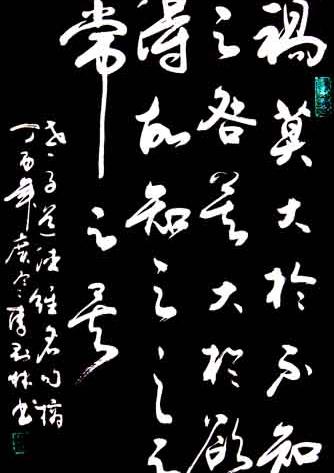 禍莫大於不知
足咎莫大於欲
得故知足之足
常足矣
老子道德經名句摘
丁酉年李林書